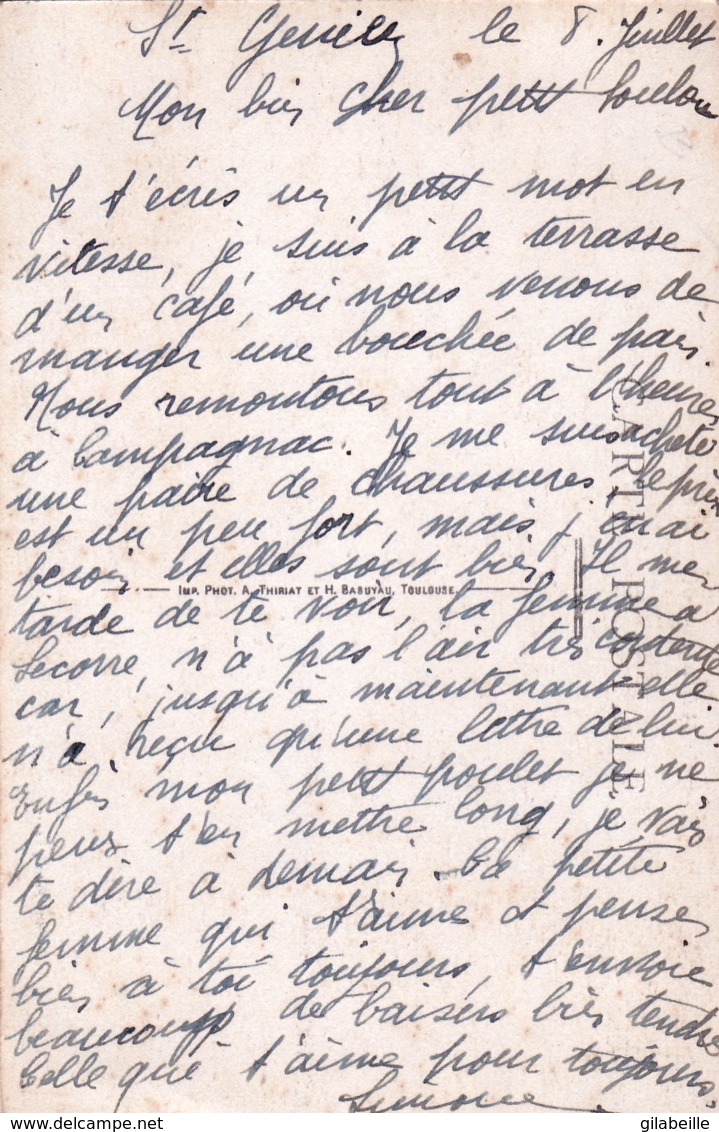 St Geniez le 8. Juillet
Mon bien cher petit Loulou
Je t'écris un petit mot en
vitesse, je suis à la terrasse
d'un café, où nous venons de
manger une bouchée de pain.
Nous remontons tout à l'heure
à Campagnac. Je me suis acheté
une paire de chaussures, le prix
est un peu fort, mais j'en ai
besoin et elles sont bien. Il me
IMP. PHOT. A. THIRIAT ET H. BASUYAU, TOULOUSE.
tarde de te voir, la femme a
Lecorre, n'a pas l'air très contente
car, jusqu'à maintenant elle
n'a reçu qu'une lettre de lui.
Enfin mon petit poulet je ne
peux t'en mettre long, je vais
te dire à demain. La petite
femme qui t'aime et pense
bien à toi toujours, t'envoie
beaucoup de baisers bien tendres
Celle que t'aime pour toujours.
Simone
CARTE POSTALE
gilabeille